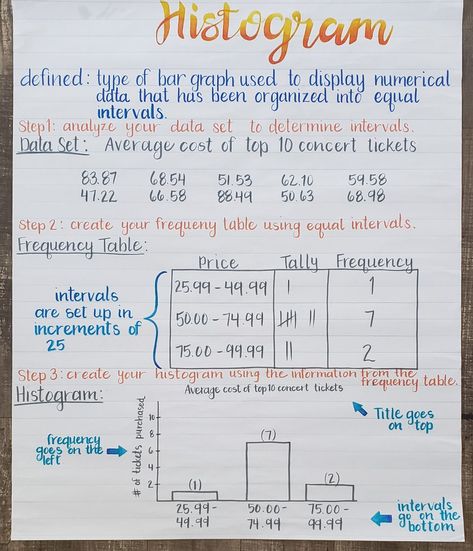 Histogram
defined: type of bar graph used to display numerical
data that has been organized into equal
intervals.
Step 1: analyze your data set to determine intervals.
Data Set: Average cost of top 10 concert tickets
83.87 68.54 51.53 62.10 59.58
47.22 66.58 88.49 50.63 68.98
Step 2: create your frequeny table using equal intervals.
Frequency Table:
Price Tally Frequency
25.99 - 49.99 | 1
50.00 - 74.99 |||| || 7
75.00 - 99.99 || 2
intervals
are set up in
increments of
25
Step 3: create your histogram using the information from the
frequency table.
Histogram:
Average cost of top 10 concert tickets
Title goes
on top
frequency
goes on the
left
# of tickets purchased
10
8
6
4
2
(1) (7) (2)
25.99 - 50.00 - 75.00 -
49.99 74.99 99.99
intervals
go on the
bottom